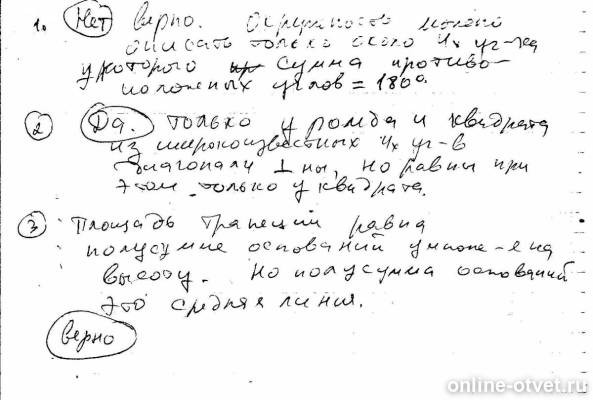 1. Нет верно. Окружность можно
описать только около 4х уг-ка
у которого сумма противо-
положных углов = 180°.
2 Да. только у ромба и квадрата
из широкоизвестных 4х уг-в
диагонали ⊥ ны, но равны при
этом только у квадрата.
3 Площадь трапеции равна
полусумме оснований умнож-е на
высоту. Но полусумма оснований
это средняя линия.
верно
online-otvet.ru